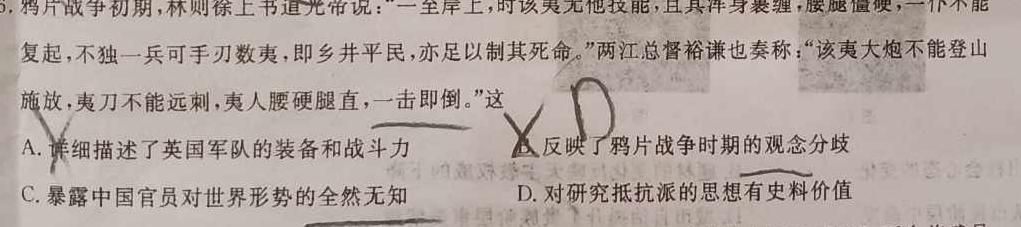 6.鸦片战争初期,林则徐上书道光帝说:“一至岸上,时该夷无他技能,且其浑身裹缠,腰腿僵硬,一仆不能
复起,不独一兵可手刃数夷,即乡井平民,亦足以制其死命。”两江总督裕谦也奏称:“该夷大炮不能登山
施放,夷刀不能远刺,夷人腰硬腿直,一击即倒。”这 D
A.详细描述了英国军队的装备和战斗力 B.反映了鸦片战争时期的观念分歧
C.暴露中国官员对世界形势的全然无知 D.对研究抵抗派的思想有史料价值